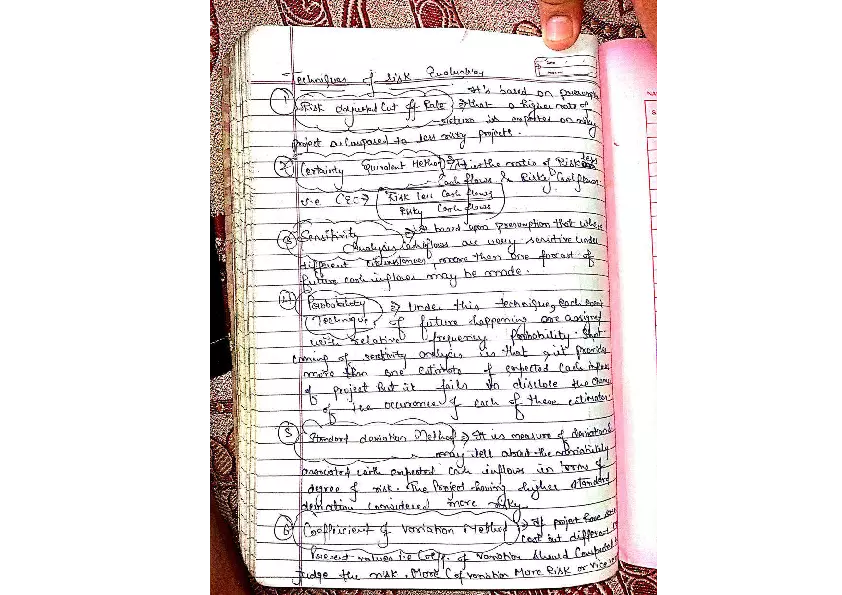 Techniques of Risk Evaluation
1 Risk adjusted Cut off Rate => It's based on presumption
that a higher rate of
return is expected on risky
project as compared to less risky projects.
2 Certainty Equivalent Method => It is the ratio of Risk less
Cash flows & Risky Cash flows
i.e CE => Risk less Cash flows
Risky Cash flows
3 Sensitivity => is based upon presumption that where
Analysis cash flows are very sensitive under
different circumstances, more than one forcast of
future cash inflows may be made.
4 Probability => Under this technique, each event
Technique of future happening are assigned
with relative frequency probability. Short
coming of sensitivity analysis is that it provides
more than one estimate of expected cash inflows
of project but it fails to disclose the chance
of the occurrence of each of these estimates.
5 Standard deviation Method => It is measure of deviation &
may tell about the variability
associated with expected cash inflows in terms of
degree of risk. The Project having higher standard
deviation considered more risky
6 Coefficient of Variation Method => If project have same
cost but different
Present values i.e Coeff. of variation should computed
judge the risk. More C of variation More Risk or vice